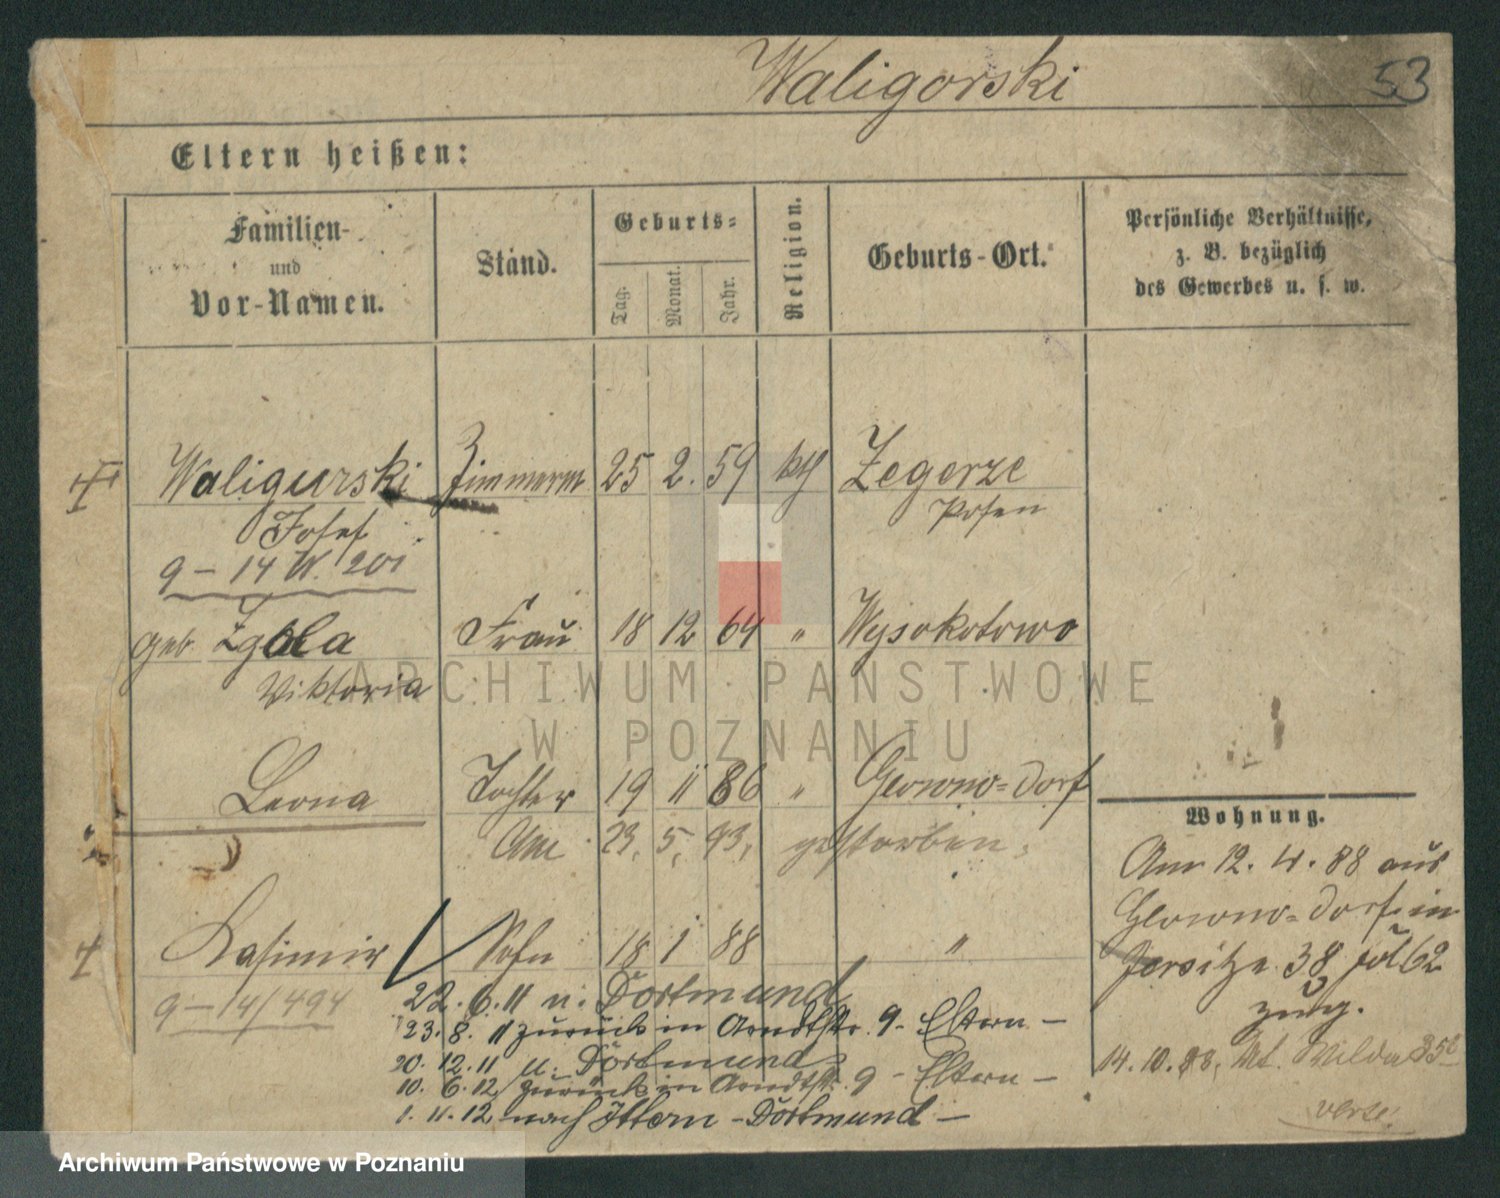 Waligorski 53
Eltern heißen:
Familien- und Vor-Namen.
Stand.
Geburts-
Tag. Monat. Jahr.
Religion.
Geburts-Ort.
Persönliche Verhältnisse,
z. B. bezüglich
des Gewerbes u. s. w.
Waligurski Zimmerm 25 2. 59 kth Zegerze
Josef Posen
9 – 14 W. 201
geb Zgola Frau 18 12 64 " Wysokotowo
Viktoria
Leona Tochter 19 11 86 " Glowno-Dorf
Am 23. 5. 93. gestorben.
Kasimir Sohn 18 1 88 "
9 – 14/494
22. 6. 11 n. Dortmund
23. 8. 11 zurück in Arndtstr. 9 - Eltern –
20. 12. 11 n. Dortmund
10. 6. 12 zurück in Arndtstr. 9 - Eltern –
1. 11. 12 nach Dortmund –
Wohnung.
Am 12. 4. 88 aus
Glowno-Dorf in
Jersitze 38 62
zug.
14. 10. Wilda
verte!
ARCHIWUM PAŃSTWOWE
W POZNANIU
Archiwum Państwowe w Poznaniu